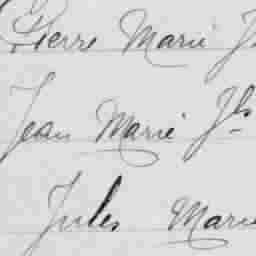 Pierre Marie J
Jean Marie Jh
Jules Marie